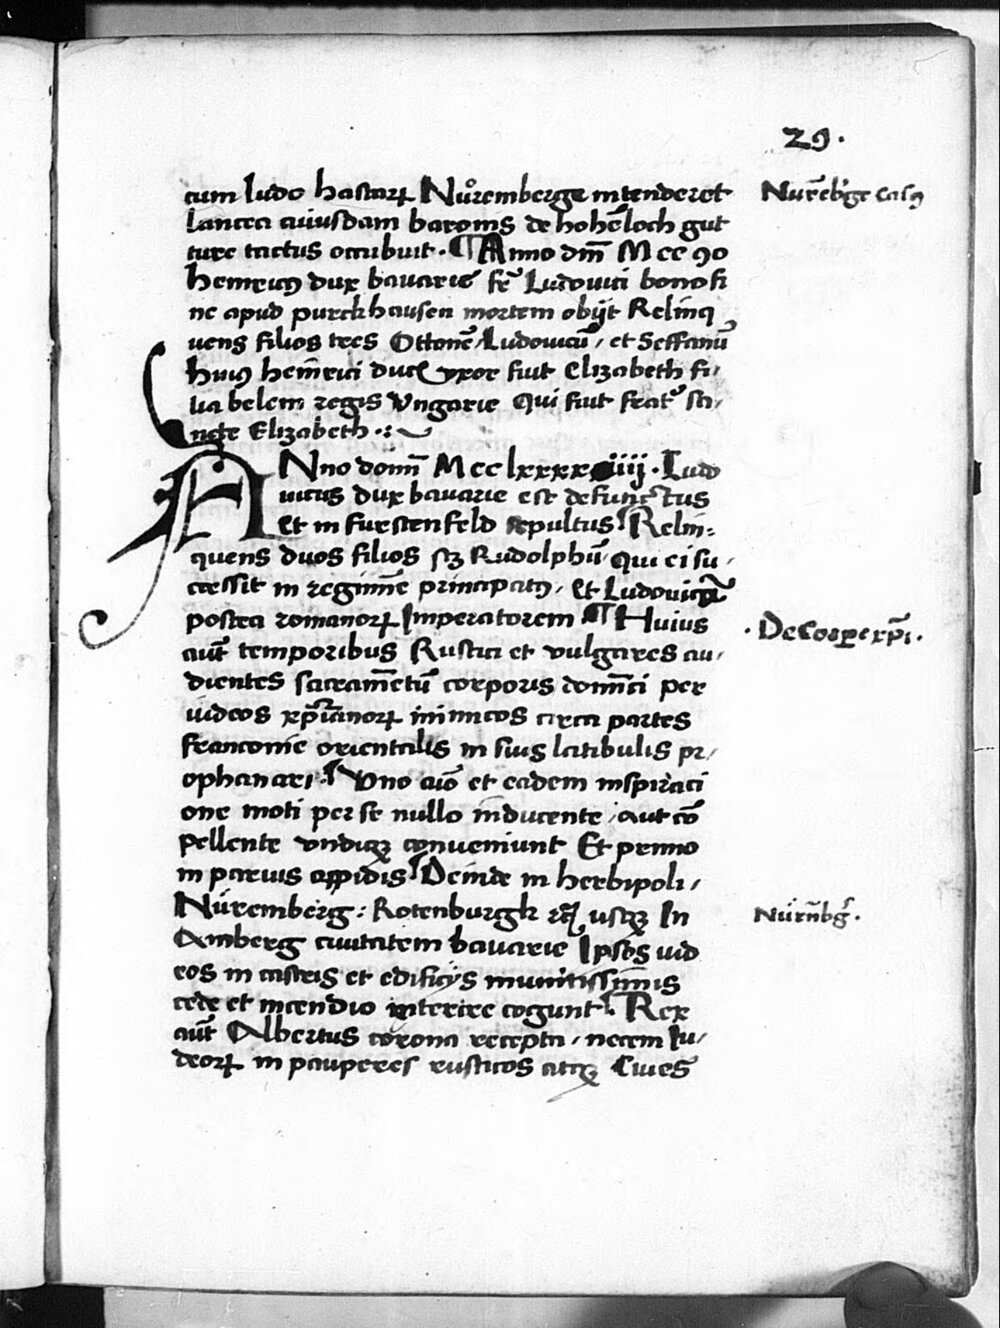 29.
cum ludo hastarꝝ Nůremberge intenderet
Nur̄eb'ge casꝰ
Lancea cuiusdam baronis de hohēloch gut
ture tactus occubuit. ¶ Anno dn̄i M cc 90
Heinricꝰ dux bavarie fr̄ Ludovici bono fi
ne apud purckhausen mortem obijt Relinq
uens filios tres Ottonē / Ludovicū / et Steffanū
Huiꝰ heinrici ducꝭ vxor fuit Elizabeth fi /
lia belem regis Vngarie Qui fuit frat' sa /
ncte Elizabeth .:
ANno domī M cc lxxxx iiij . Ludo
uicus dux bavarie est defunctus
Et in furstenfeld sepultus ¶ Relin:
quens duos filios sꝫ Rudolphū / Qui ei su /
ccessit in regimīe principatꝰ / Et Ludovicū
postea romanorꝝ Imperatorem ¶ Huius
aūt temporibus Rustici et vulgares au /
. De Corpe xp̄i .
dientes sacramētū corporis domīci per
iudeos xp̄ianorꝝ inimicos circa partes
franconie orientalis in suis latibulis pr /
ophanari . ¶ Vno aīo et eadem inspiraci
one moti per se nullo inducente / aut cō
pellente vndiqꝫ conueniunt Et primo
in paruis oppidis ¶ Deinde in herbipoli /
Nüremberg : Rotenburgk usqꝫ In
Nürn̄bḡ .
Amberg ciuitatem bavarie Ipsos iud
eos in castris et edificijs munitissimis
cede et incendio interire cogunt ¶ Rex
aūt Albertus corona recepta / necem Iu /
deorꝝ in pauperes rusticos atqꝫ Ciues